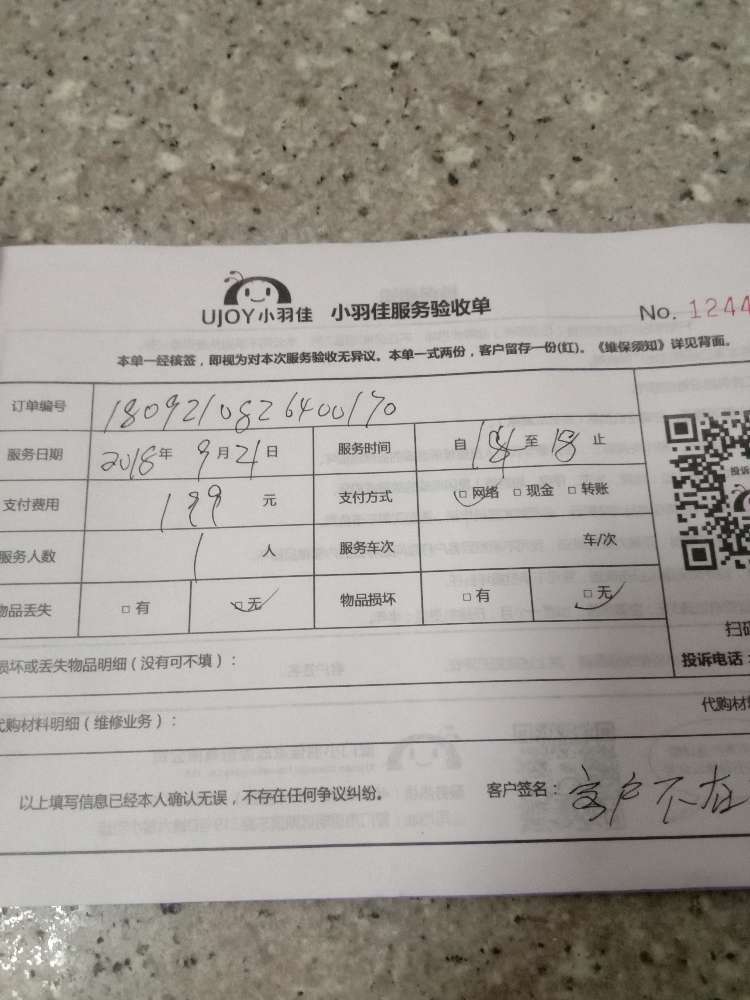 UJOY小羽佳 小羽佳服务验收单
No. 1244
本单一经核签，即视为对本次服务验收无异议。本单一式两份，客户留存一份(红)。《维保须知》详见背面。
订单编号 1809210826400170
服务日期 2018年 9月21日 服务时间 自 14 至 18 止
支付费用 199 元 支付方式 □网络 □现金 □转账
服务人数 1 人 服务车次 车/次
物品丢失 □有 □无 物品损坏 □有 □无
投诉
扫码
损坏或丢失物品明细（没有可不填）： 投诉电话：
代购材料明细（维修业务）： 代购材
以上填写信息已经本人确认无误，不存在任何争议纠纷。 客户签名：客户不在